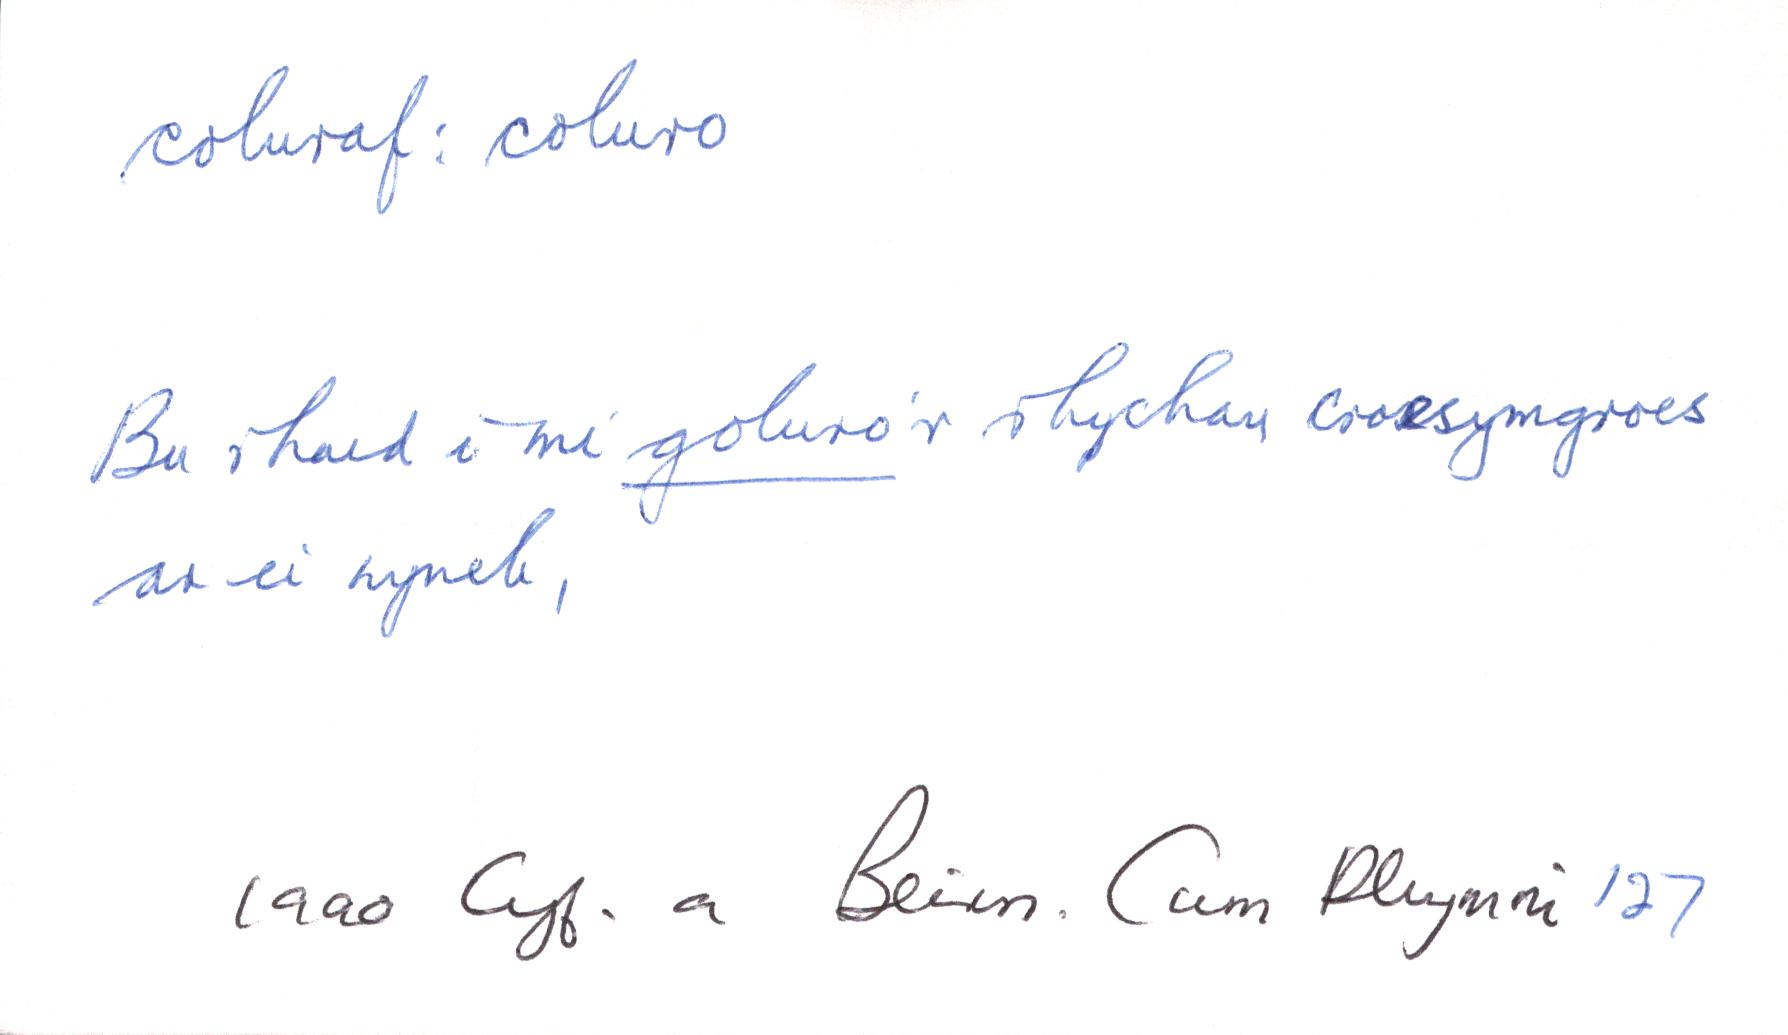 coluraf: coluro
Bu rhaid i mi goluro'r rhychau croesymgroes
ar ei wyneb,
1990 Cyf. a Beirn. Cwm Rhymni 127